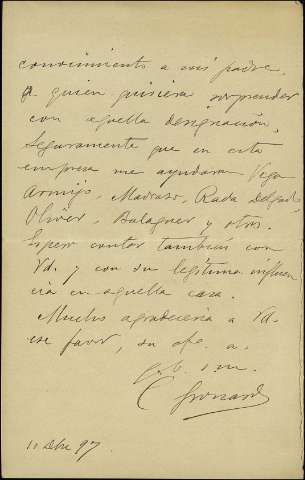 conocimiento a mis padre,
a quien quisiera sorprender
con aquella designación.
Seguramente que en esta
empresa me ayudaran Vega
Armijo, Madrazo, Rada Delgado
Olivér, Balaguer y otros.
Espero contar también con
Vd. y con su legítima influen
cia en aquella casa.
Mucho agradecería a Vd.
ese favor, su afo. a.
q. b. s. m.
11 Dbre 97